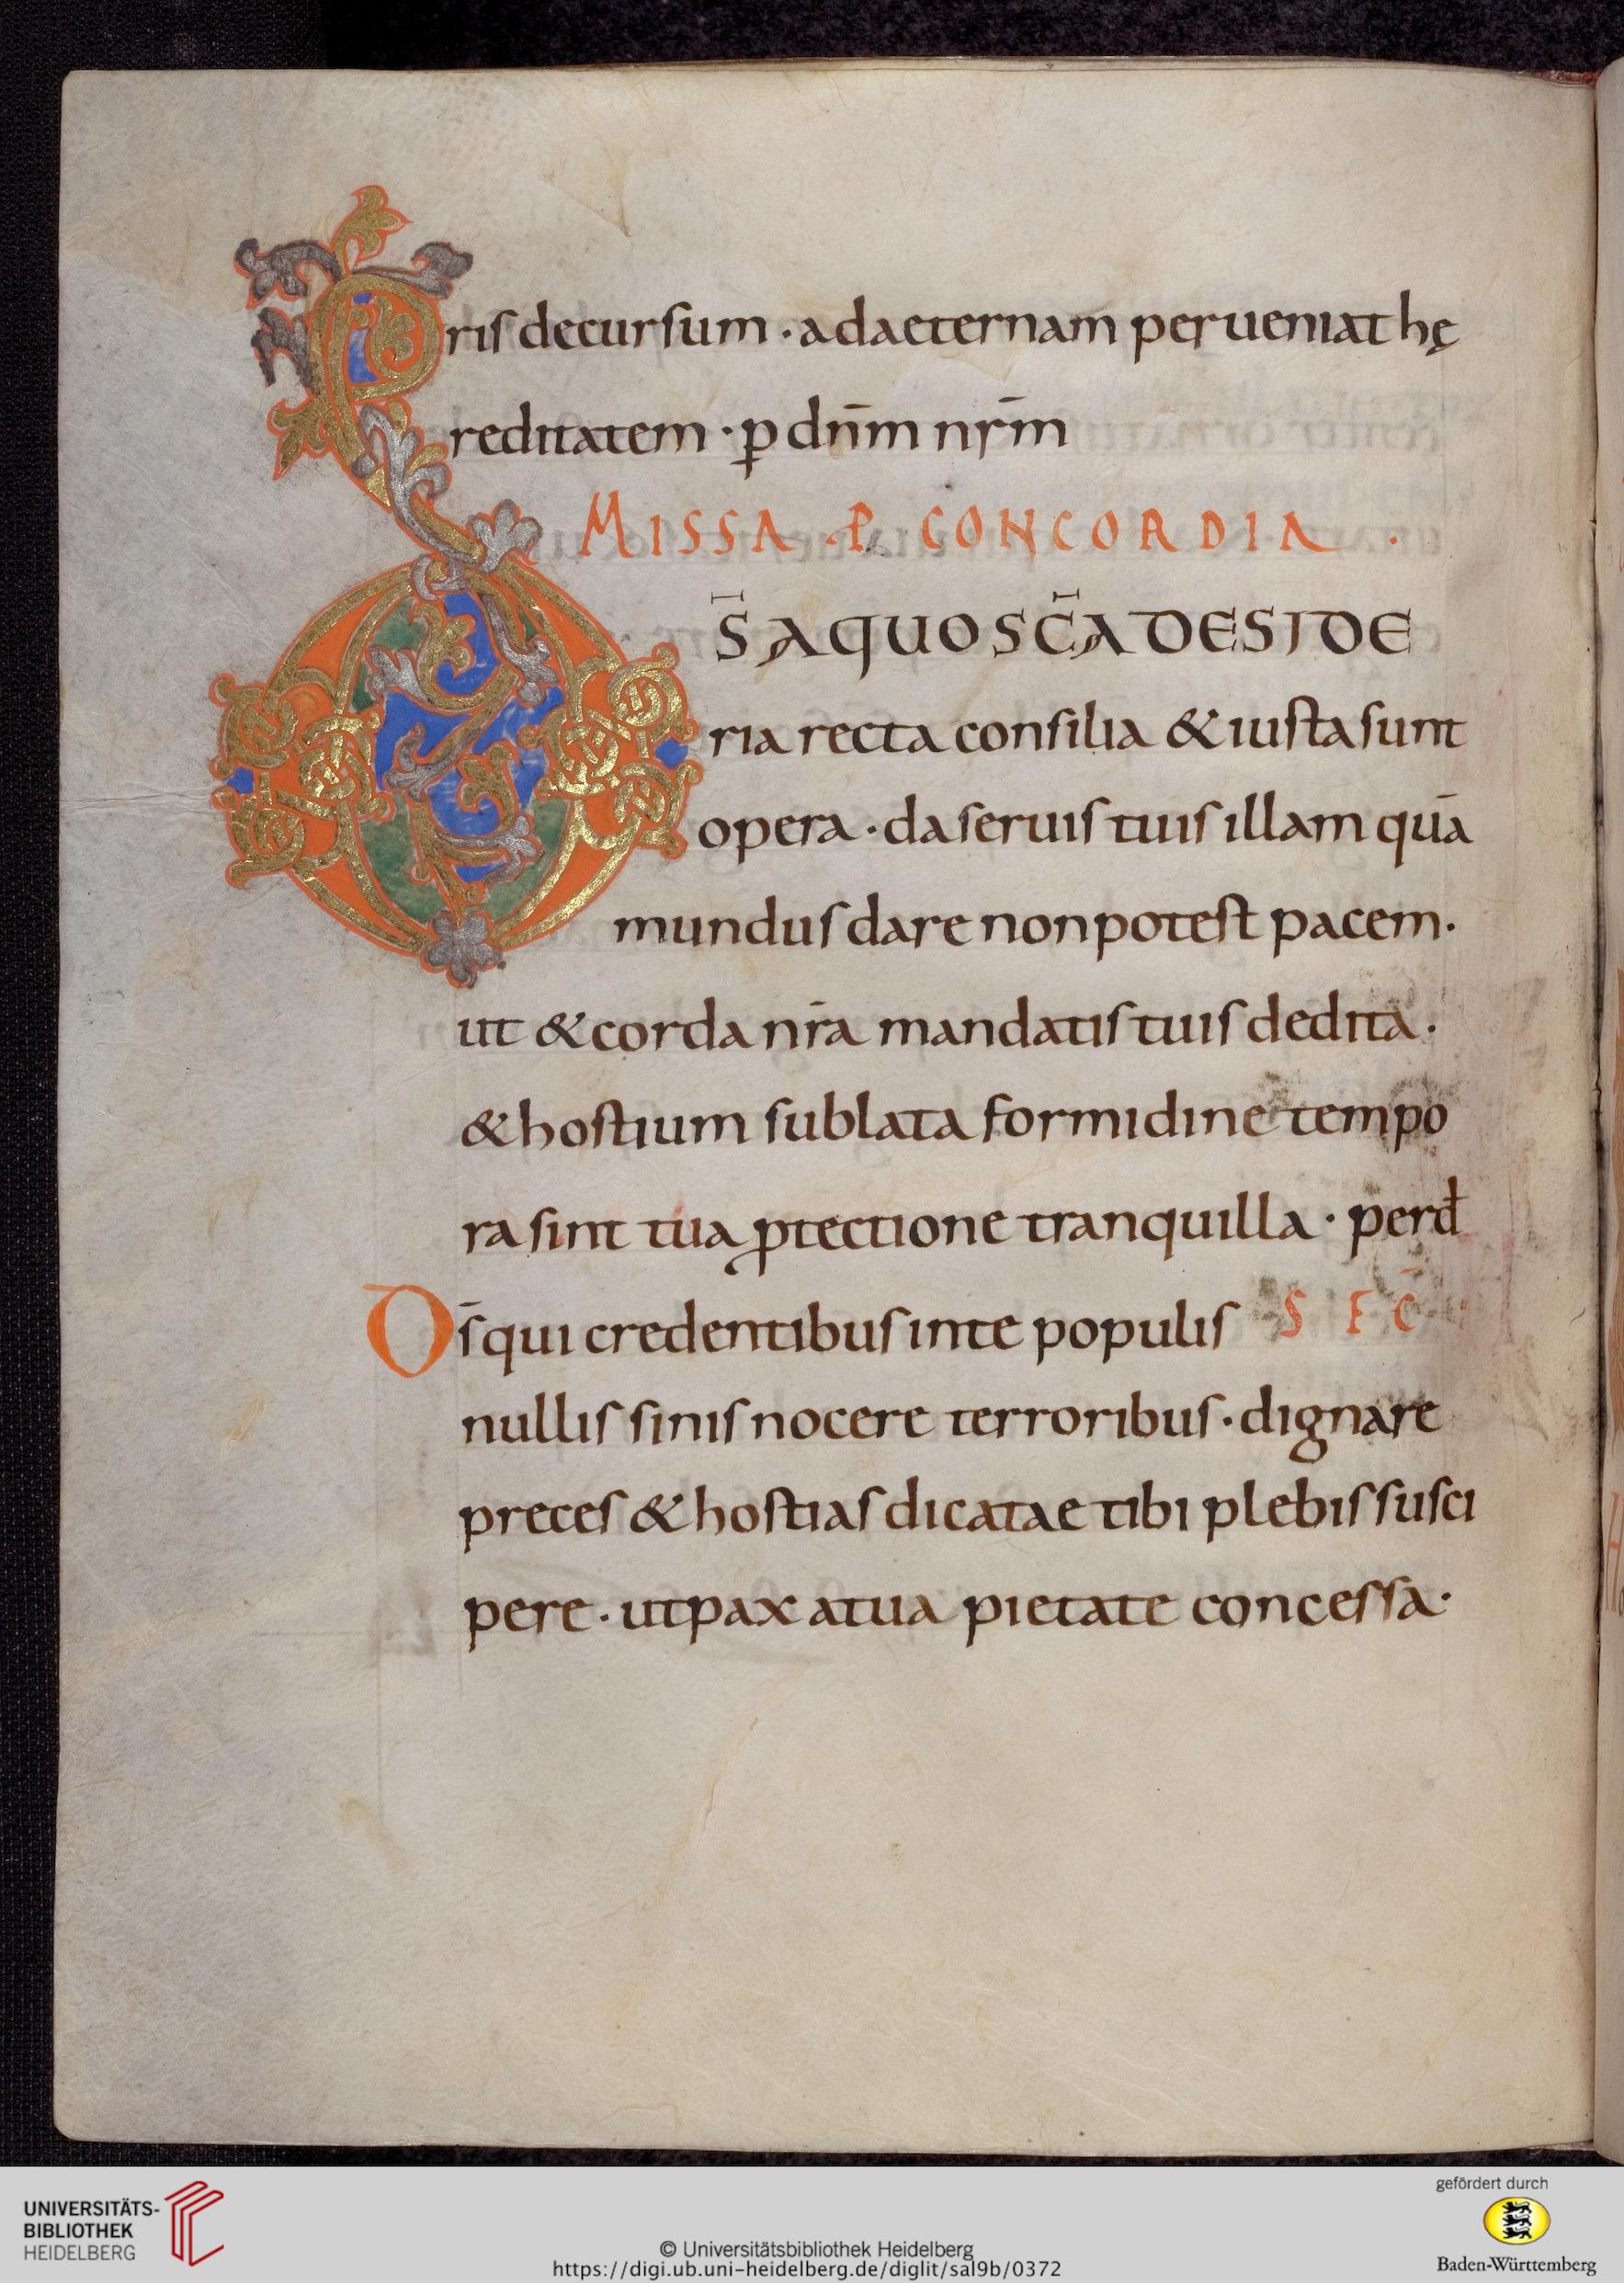 ris decursum · ad aeternam perueniat hę
reditatem · ꝑ dn̄m nr̄m
MISSA P CONCORDIA ·
DS̄ A QUO SC̄A DESIDE
ria recta consilia & iusta sunt
opera · da seruis tuis illam quā
mundus dare non potest pacem ·
ut & corda nr̄a mandatis tuis dedita ·
& hostium sublata formidine tempo
ra sint tua ꝓtectione tranquilla · per đ
Ds̄ qui credentibus in te populis SEC̄
nullis sinis nocere terroribus · dignare
preces & hostias dicatae tibi plebis susci
pere · ut pax a tua pietate concessa ·
UNIVERSITÄTS-
BIBLIOTHEK
HEIDELBERG
© Universitätsbibliothek Heidelberg
https://digi.ub.uni-heidelberg.de/diglit/sal9b/0372
gefördert durch
Baden-Württemberg